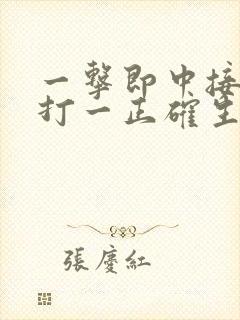 一擊即中接
打一正確生
張慶紅